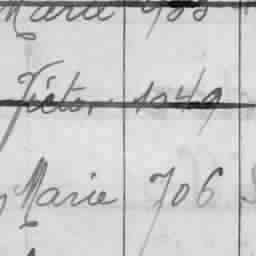 Marie 988
Victor 1049
Marie 706